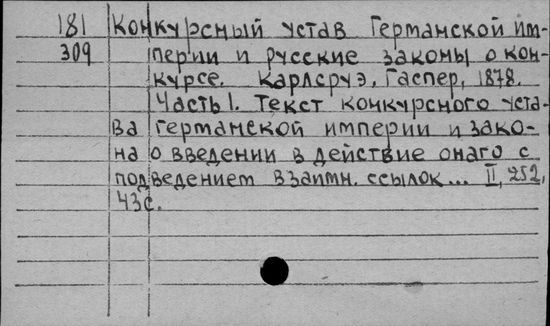 181 Конкурсный устав Германской им-
309 перии и русские законы о кон-
курсе. Карлсруэ, Гаспер, 1878.
Часть I. Текст конкурсного уста-
ва Германской империи и зако-
на о введении в действие онаго с
подведением взаимн. ссылок... II, 252,
43 с.